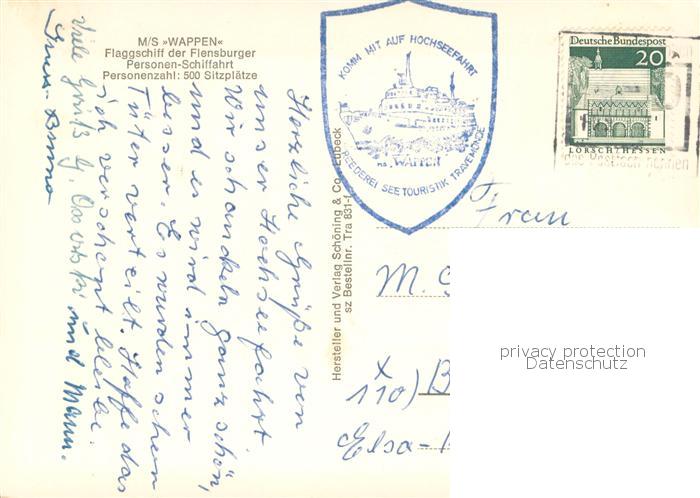 M/S »WAPPEN«
Flaggschiff der Flensburger
Personen-Schiffahrt
Personenzahl: 500 Sitzplätze
KOMM MIT AUF HOCHSEEFAHRT
MS. WAPPEN
REEDEREI SEETOURISTIK TRAVEMÜNDE
Deutsche Bundespost
20
LORSCH/HESSEN
das Postfach nennen
Herzliche Grüße von
unser Hochseefahrt
Wir schaukeln ganz schön,
und es wird immer
besser. Es wurden schon
Tüten verteilt. Hoffe das
ich verschont bleibe.
Viele Grüße
und Mann.
Hersteller und Verlag Schöning & Co. Lübeck
sz Bestellnr. Tra 831-
Frau
M.
110) B
Elsa-
privacy protection
Datenschutz